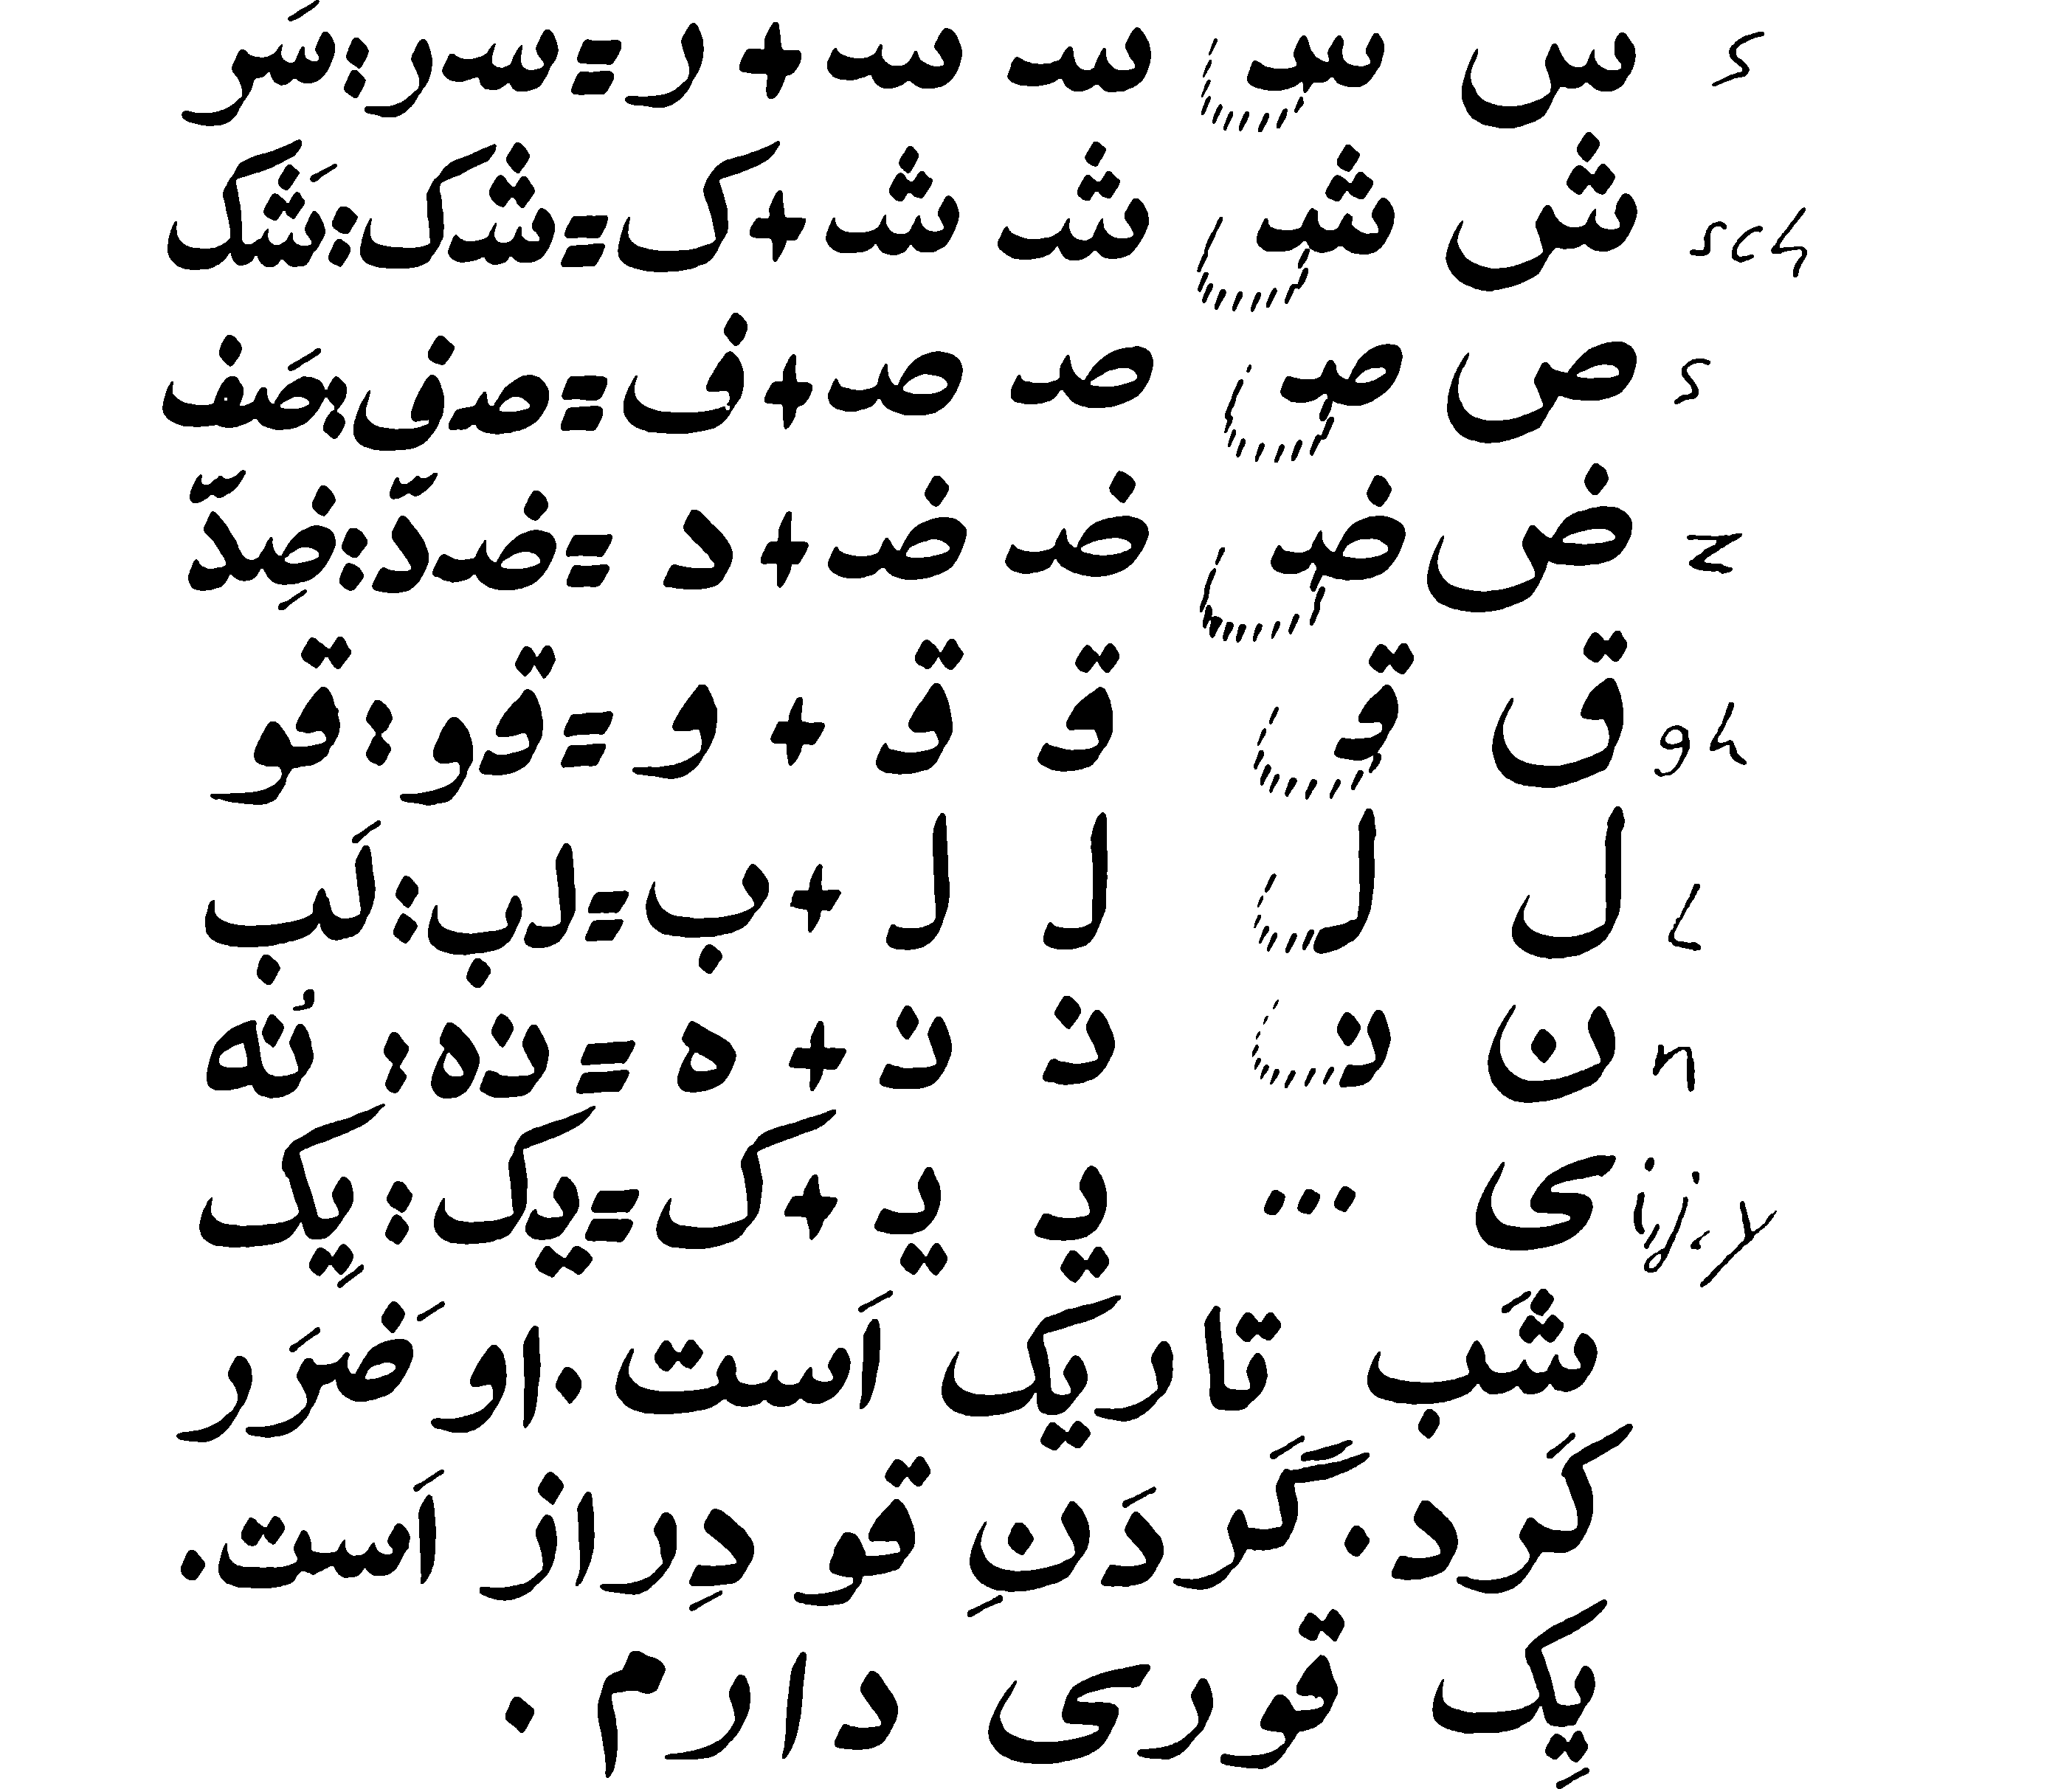 s س سـ سـ سـ + ر = سـر : سَر
sch ش شـ شـ شـ + ک = شـک : شَک
s ص صـ صـ صـ + ف = صـف : صَف
z ض ضـ ضـ ضـ + د = ضـدّ : ضِدّ
gh ق قـ قـ قـ + و = قـو : قو
l ل لـ لـ لـ + ب = لـب : لَب
n ن نـ نـ نـ + ه = نـه : نُه
i,j,y ی ... یـ یـ + ک = یـک : یِک
شَب تاریک اَست . او ضَرَر
کَرد . گَردَنِ قو دِراز اَست .
یِک قوری دارم .